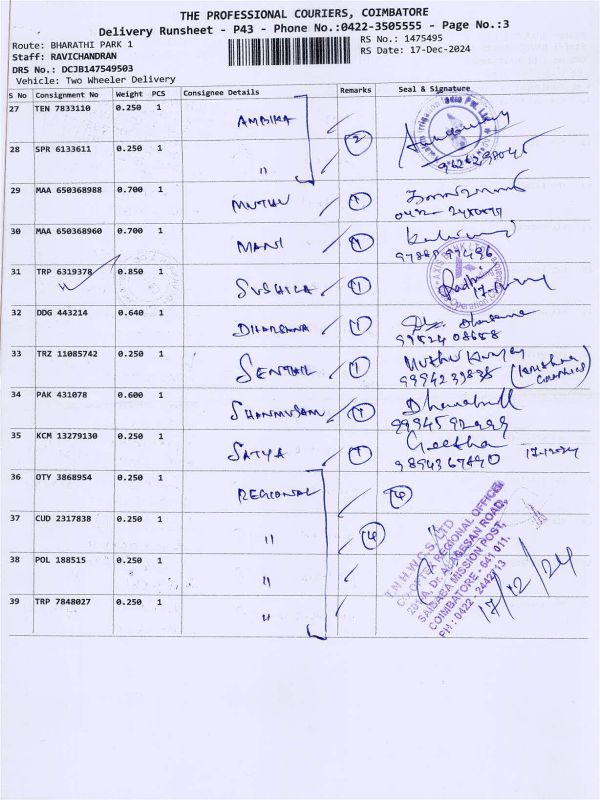 THE PROFESSIONAL COURIERS, COIMBATORE
Delivery Runsheet - P43 - Phone No.:0422-3505555 - Page No.:3
Route: BHARATHI PARK 1
RS No.: 1475495
Staff: RAVICHANDRAN
RS Date: 17-Dec-2024
DRS No.: DCJB147549503
Vehicle: Two Wheeler Delivery
S No Consignment No Weight PCS Consignee Details Remarks Seal & Signature
27 TEN 7833110 0.250 1 AMBIKA
28 SPR 6133611 0.250 1 " 2
29 MAA 650368988 0.700 1 MUTHU 1
30 MAA 650368960 0.700 1 MANI 1
31 TRP 6319378 0.850 1 SUSHILA 1
AXIS BANK
32 DDG 443214 0.640 1 DHARSANA 1
33 TRZ 11085742 0.250 1 SENTHIL 1
34 PAK 431078 0.600 1 SHANMUGAM 1
35 KCM 13279130 0.250 1 SATYA 1 Geetha
9894367490 17-12-24
36 OTY 3868954 0.250 1 REGIONAL
37 CUD 2317838 0.250 1 "
38 POL 188515 0.250 1 "
39 TRP 7848027 0.250 1 "
T.N.H.W.C.S. LTD
REGIONAL OFFICE
SAIBABA MISSION POST,
COIMBATORE - 641 011.
17/12/24